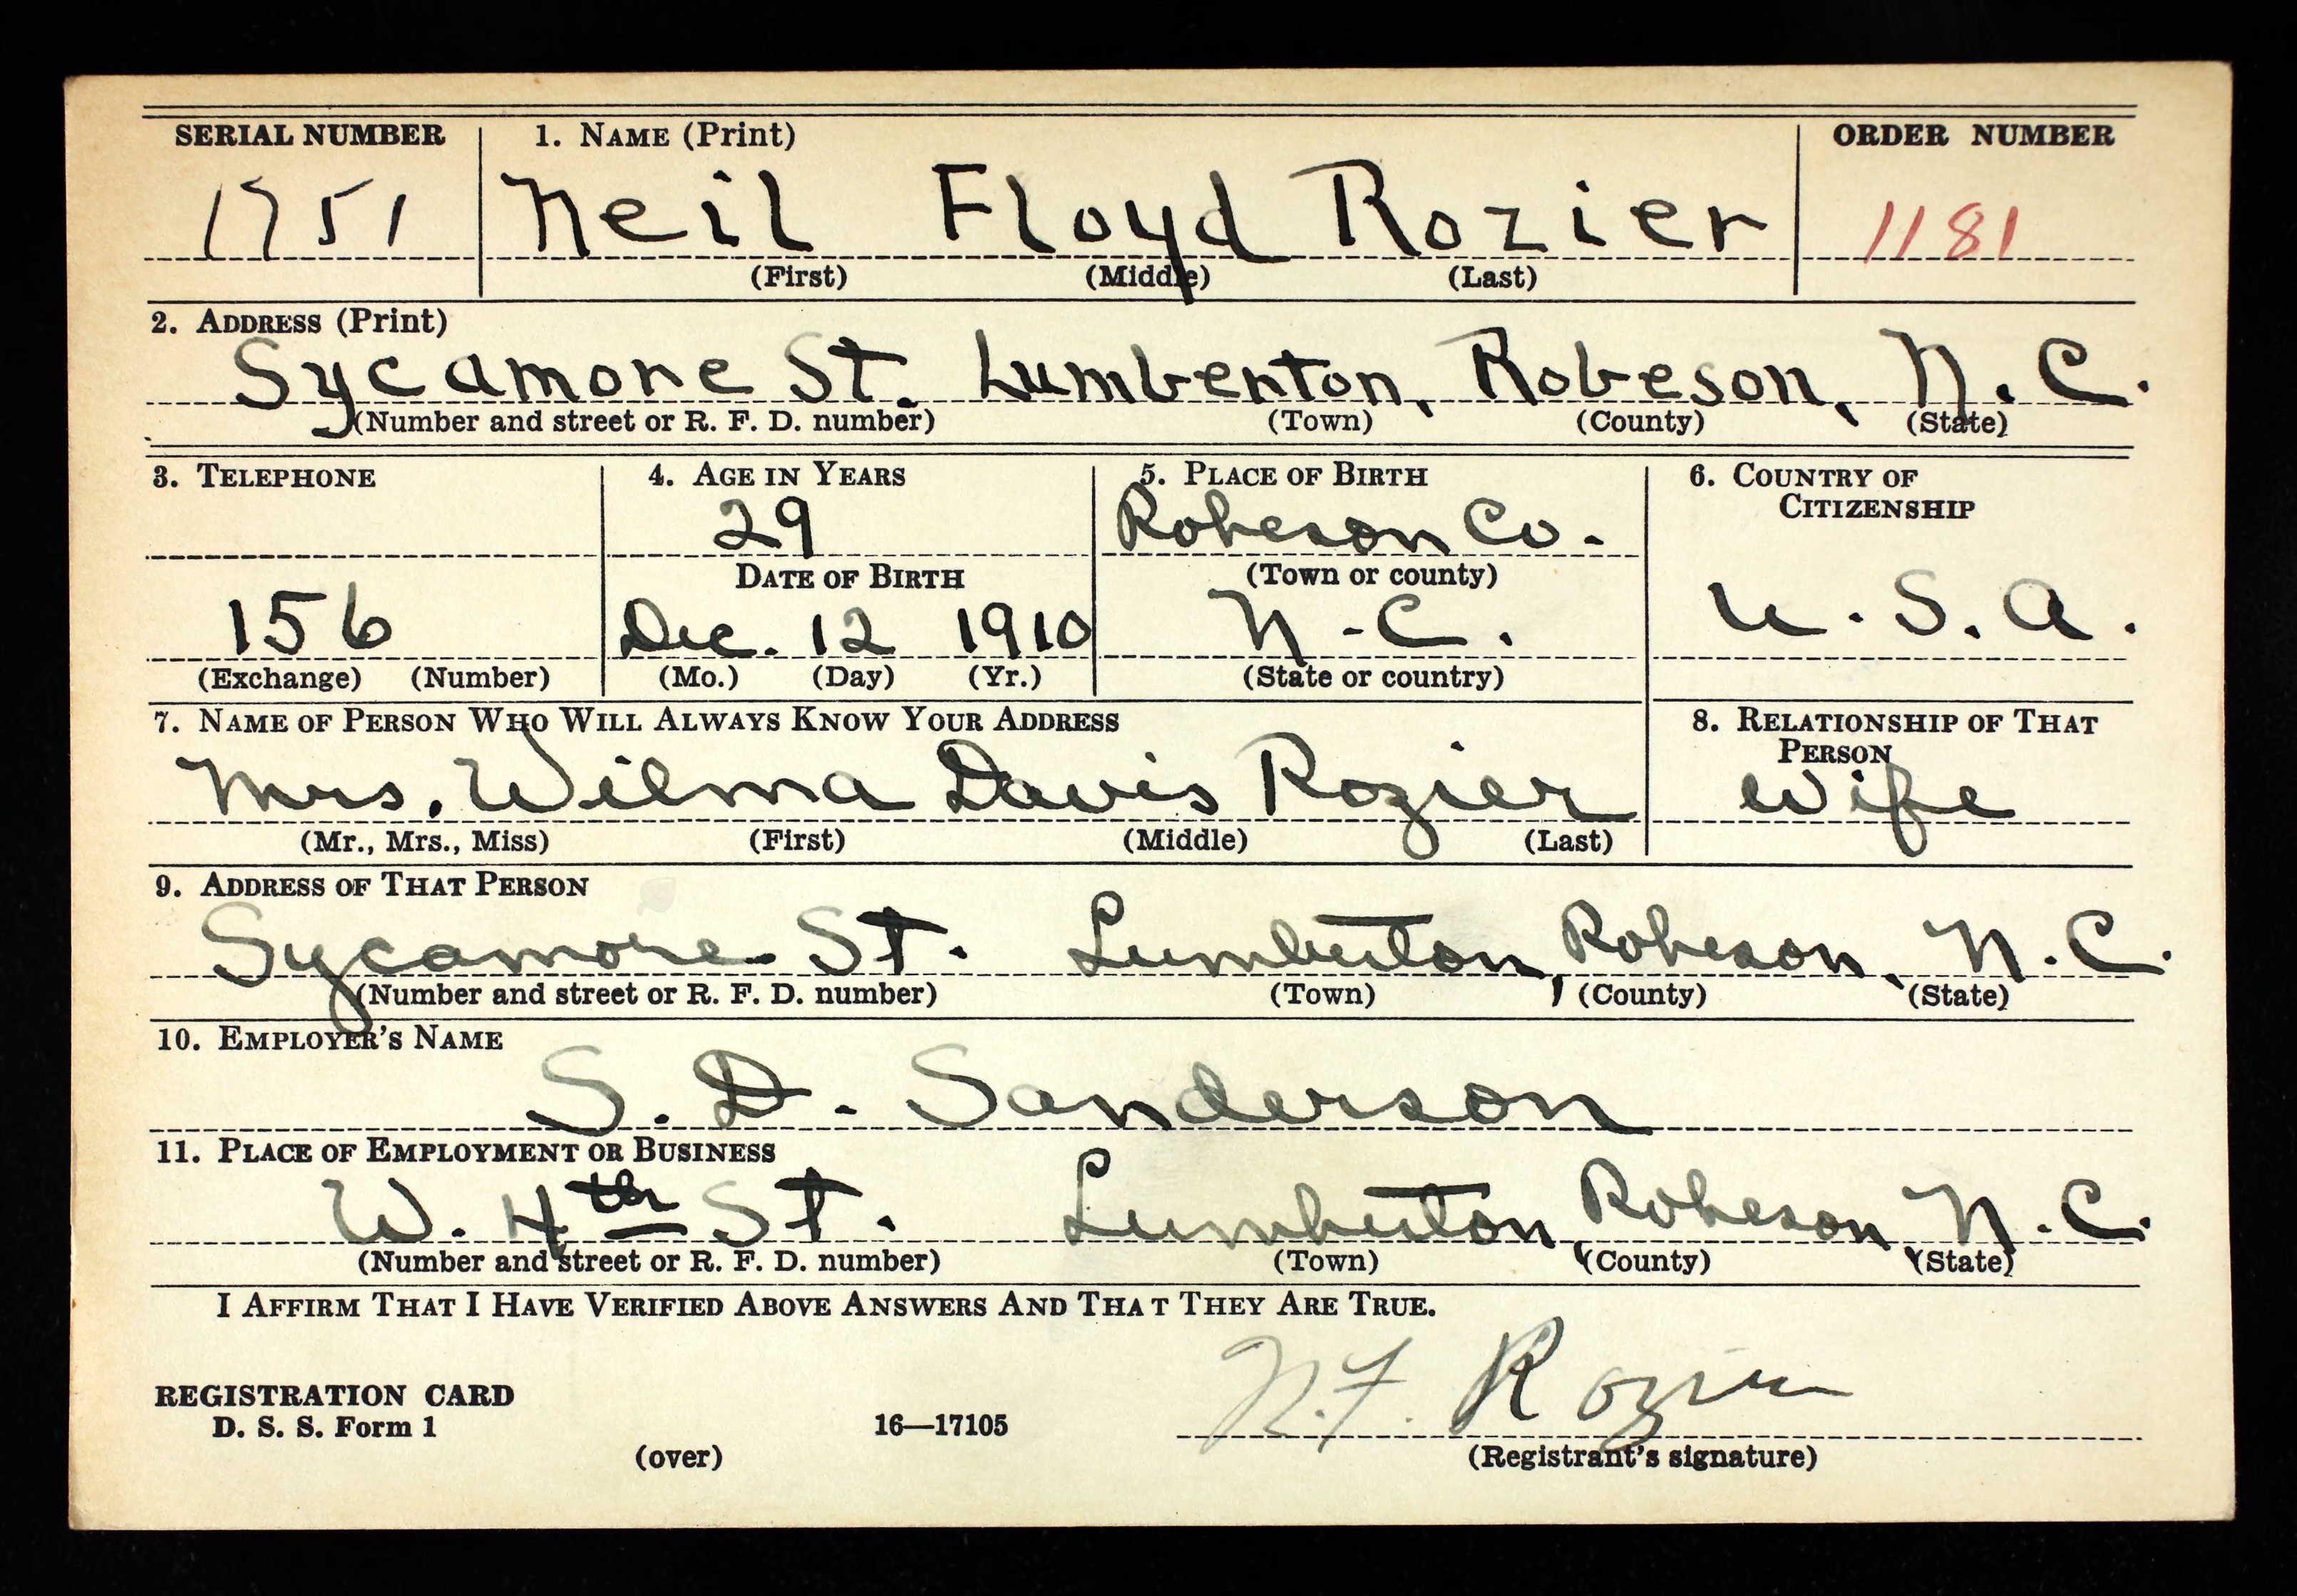 SERIAL NUMBER 1. NAME (Print) ORDER NUMBER
1751 Neil Floyd Rozier 1181
(First) (Middle) (Last)
2. ADDRESS (Print)
Sycamore St. Lumberton, Robeson, N.C.
(Number and street or R. F. D. number) (Town) (County) (State)
3. TELEPHONE 4. AGE IN YEARS 5. PLACE OF BIRTH 6. COUNTRY OF
CITIZENSHIP
29 Robeson Co.
DATE OF BIRTH (Town or county)
156 Dec. 12 1910 N.C. U.S.A.
(Exchange) (Number) (Mo.) (Day) (Yr.) (State or country)
7. NAME OF PERSON WHO WILL ALWAYS KNOW YOUR ADDRESS 8. RELATIONSHIP OF THAT
PERSON
Mrs. Wilma Davis Rozier Wife
(Mr., Mrs., Miss) (First) (Middle) (Last)
9. ADDRESS OF THAT PERSON
Sycamore St. Lumberton, Robeson, N.C.
(Number and street or R. F. D. number) (Town) (County) (State)
10. EMPLOYER'S NAME
S. D. Sanderson
11. PLACE OF EMPLOYMENT OR BUSINESS
W. 4th St. Lumberton, Robeson, N.C.
(Number and street or R. F. D. number) (Town) (County) (State)
I AFFIRM THAT I HAVE VERIFIED ABOVE ANSWERS AND THAT THEY ARE TRUE.
N.F. Rozier
REGISTRATION CARD
D. S. S. Form 1 16—17105
(over) (Registrant's signature)